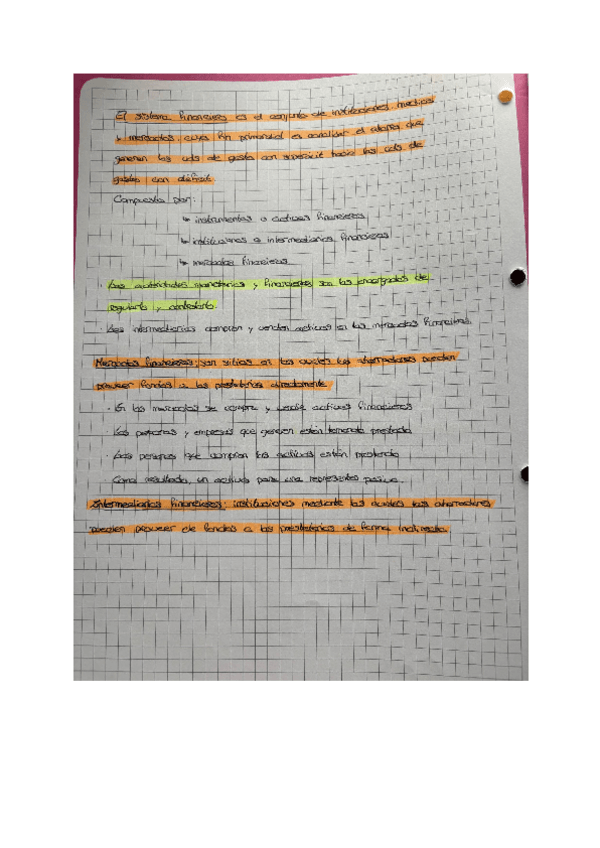 El sistema financiero es el conjunto de instituciones, medios
y mercados, cuyo fin primordial es canalizar el ahorro que
generan las uds de gasto con superávit hacia las uds de
gastos con déficit.
Compuesto por:
↳ instrumentos o activos financieros
↳ instituciones o intermediarios financieros
↳ mercados financieros
· Las autoridades monetarias y financieras son las encargadas de
regularlo y controlarlo.
· Los intermediarios compran y venden activos en los mercados financieros.
Mercados financieros: son sitios en los cuales los ahorradores pueden
proveer fondos a los prestatarios directamente.
· En los mercados se compra y vende activos financieros
· Las personas y empresas que generan están tomando prestado
· Las personas que compran los activos están prestando
Como resultado, un activo para una representa pasivo.
Intermediarios financieros: instituciones mediante las cuales los ahorradores
pueden proveer de fondos a los prestatarios de forma indirecta.